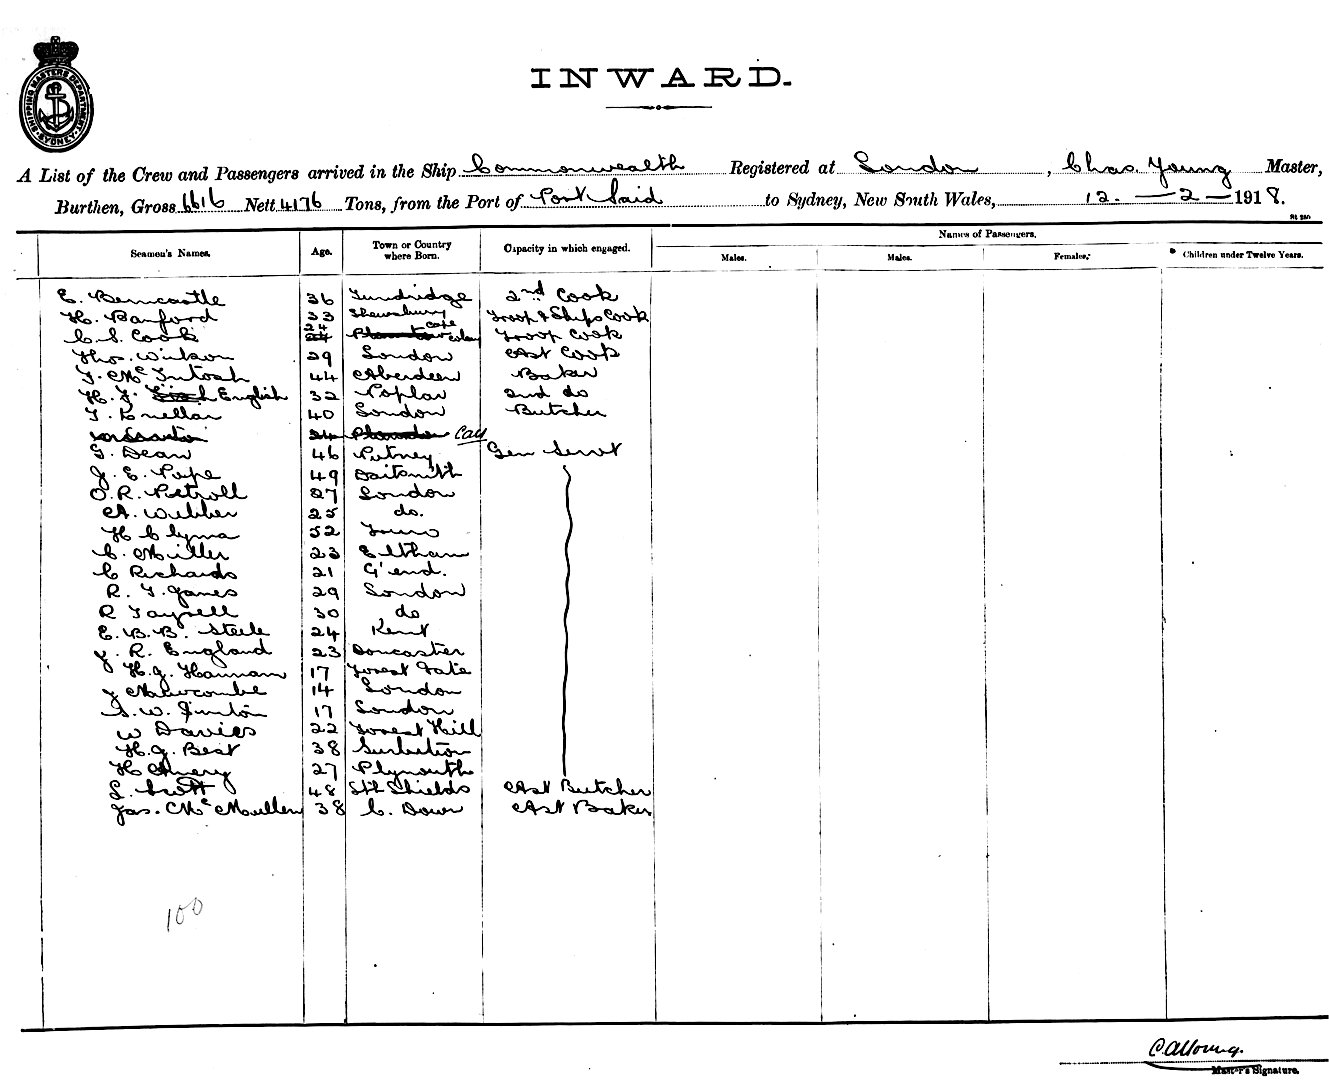 SHIPPING MASTERS DEPARTMENT SYDNEY
INWARD.
A List of the Crew and Passengers arrived in the Ship Commonwealth Registered at London, Chas. Young Master,
Burthen, Gross 6616 Nett 4176 Tons, from the Port of Port Said to Sydney, New South Wales, 12. — 2 — 1918.
Names of Passengers.
Seamen's Names. Age. Town or Country where Born. Capacity in which engaged. Males. Males. Females. Children under Twelve Years.
E. Berncastle 36 Tundridge 2nd Cook
H. Banford 33 Shewsbury Troop & Ships Cook
C. S. Cook 24 Cape Troop Cook
Thos. 29 London Ast Cook
T. McIntosh 44 Aberdeen Baker
H. F. English 32 Poplar 2nd do
T. Knellar 40 London Butcher
24
G. Dean 46 Putney Gen Servt
J. E. Pope 49
O. R. 27 London
A. Webber 25 do.
H Clyma 52 Truro
C. Miller 23 Eltham
C Richards 21 G'end.
R. T. Janes 29 London
R 30 do
E. B. B. Steele 24 Kent
J. R. England 23 Doncaster
H. J. Hannam 17 Forest Gate
J Newcombe 14 London
S. W. 17 London
W Davies 22 Forest Hill
H. J. Best 38 Surbition
H Avery 27 Plymouth
L. Scott 48 Sth Shields Ast Butcher
Jas. McMullen 38 C. Down Ast Baker
100
C. A. Young.
Master's Signature.